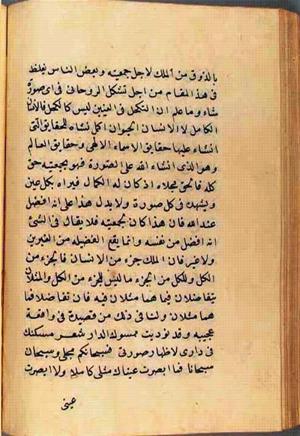 بالذوق من الملك لاجل جمعيته وبعض الناس يغلط
في هذا المقام من اجل تشكل الروحاني في اي صورة
شاء وما علم ان التكحل في العينين ليس كالكحل فالانسان
الكامل لا الانسان الحيوان اكمل نشاه للحقايق التي
انشاء عليها حقايق الاسماء الالهي وحقايق العالم
وهو الذي انشاء الله على الصورة فهو بجمعيته حق
كله فالحق مجلاه اذ كان له الكمال فيراه بكل عين
ويشهده في كل صورة ولا يدل هذا على انه افضل
عند الله فان هذا كان بجمعيته فلا يقال في الشئ
انه افضل من نفسه وانما يقع الفضيله من الغيرين
ولا غير فان الملك جزء من الانسان فالجزء من
الكل والكل من الجزء ما ليس للجزء من الكل والمثلان
يتفاضلان فيما هما مثلان فيه فان تفاضلا فما
هما مثلان ولنا في ذلك من قصيدة في واقعة
عجيبه وقد نوديت ممسوك الدار شعر مسكتك
في داري لاظهار صورتي فسبحانكم مجلى وسبحان
سبحانا فما ابصرت عيناك مثلي كاملا ولا ابصرت
عيني